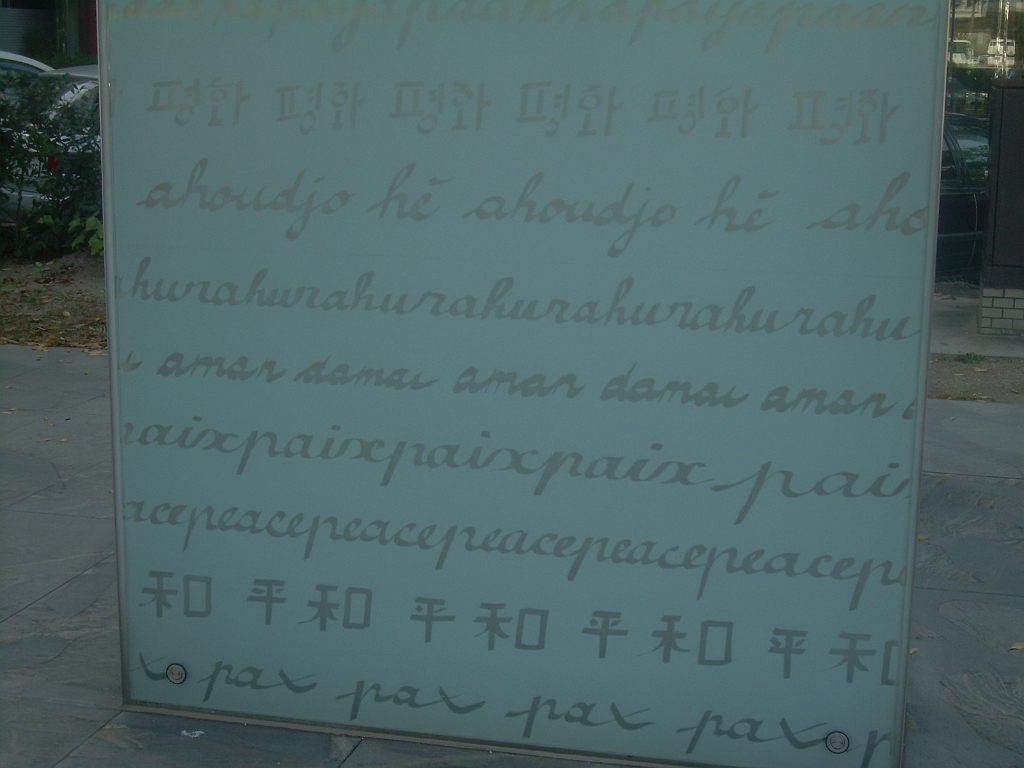 평화 평화 평화 평화 평화 평화
ahoudjo hẽ ahoudjo hẽ aho
hurahurahurahurahurahurahu
aman damai aman damai aman
aixpaixpaixpaix pai
acepeacepeacepeacepeacepeacep
和 平和 平和 平和 平和
x pax pax pax pax p